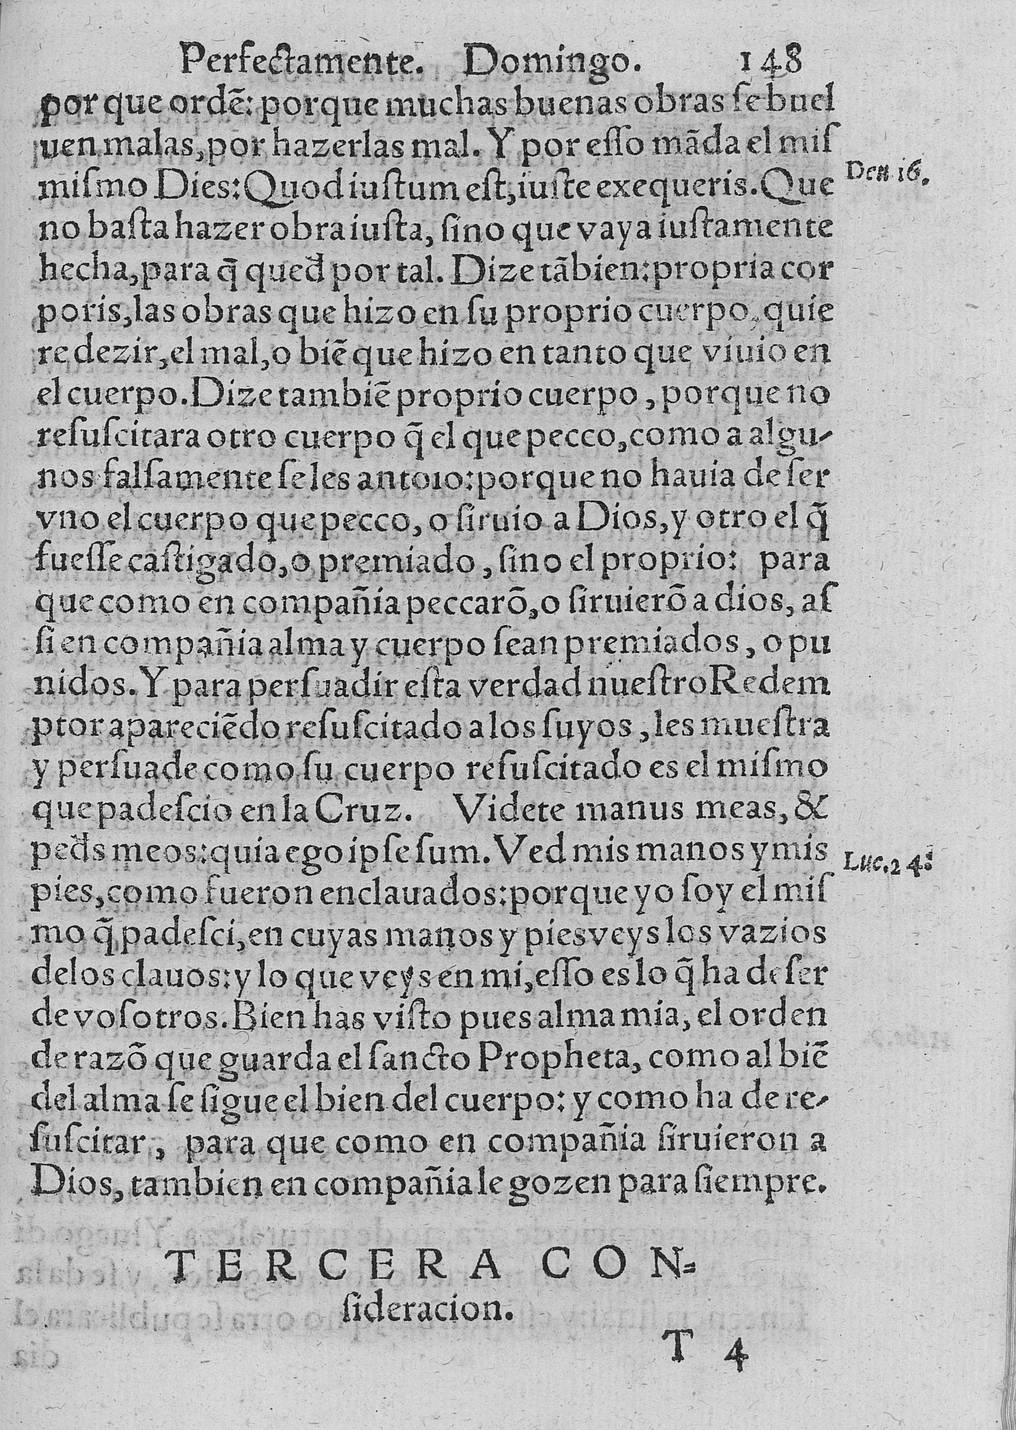 Perfectamente. Domingo. 148
por que ordē: porque muchas buenas obras ſe buel
uen malas, por hazerlas mal. Y por eſſo māda el miſ
miſmo Dies: Quod iuſtum eſt, iuſte exequeris. Que
Deu 16.
no baſta hazer obra iuſta, ſino que vaya iuſtamente
hecha, para q̄ qued̄ por tal. Dize tābien: propria cor
poris, las obras que hizo en ſu proprio cuerpo, quie
re dezir, el mal, o biē que hizo en tanto que viuio en
el cuerpo. Dize tambiē proprio cuerpo, porque no
reſuſcitara otro cuerpo q̄ el que pecco, como a algu-
nos falſamente ſe les antoio: porque no hauia de ſer
vno el cuerpo que pecco, o ſiruio a Dios, y otro el q̄
fueſſe caſtigado, o premiado, ſino el proprio: para
que como en compañia peccarō, o ſiruierō a dios, aſ
ſi en compañia alma y cuerpo ſean premiados, o pu
nidos. Y para perſuadir eſta verdad nueſtro Redem
ptor apareciēdo reſuſcitado a los ſuyos, les mueſtra
y perſuade como ſu cuerpo reſuſcitado es el miſmo
que padeſcio en la Cruz. Videte manus meas, &
ped̄s meos: quia ego ipſe ſum. Ved mis manos y mis
Luc. 24.
pies, como fueron enclauados: porque yo ſoy el miſ
mo q̄ padeſci, en cuyas manos y pies veys los vazios
de los clauos: y lo que veys en mi, eſſo es lo q̄ ha de ſer
de voſotros. Bien has viſto pues alma mia, el orden
de razō que guarda el ſancto Propheta, como al biē
del alma ſe ſigue el bien del cuerpo: y como ha de re-
ſuſcitar, para que como en compañia ſiruieron a
Dios, tambien en compañia le gozen para ſiempre.
TERCERA CON=
ſideracion.
T 4